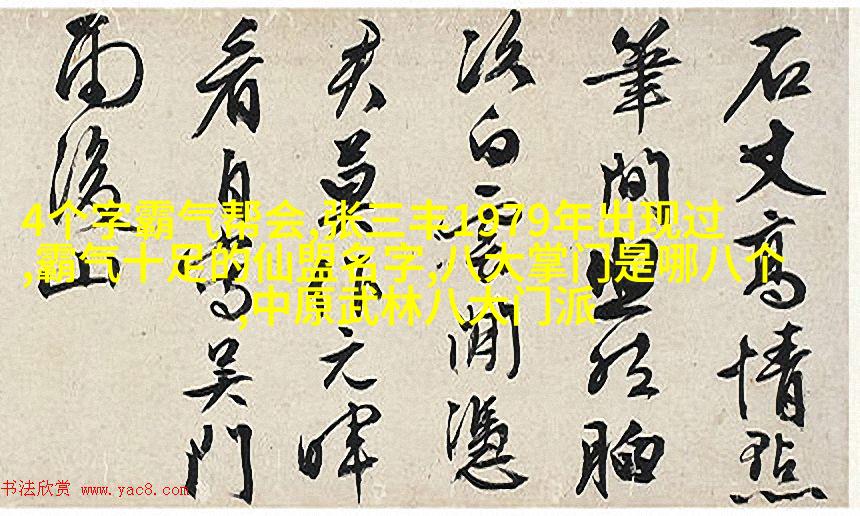 石丈高情點
筆間胸
次白雲閒憑
君莫作元暉
看自寫吳門
雨後山
4个字霸气帮会,张三丰1979年出现过
,霸气十足的仙盟名字,八大掌门是哪八个
,中原武林八大门派
书法欣赏 www.yac8.com